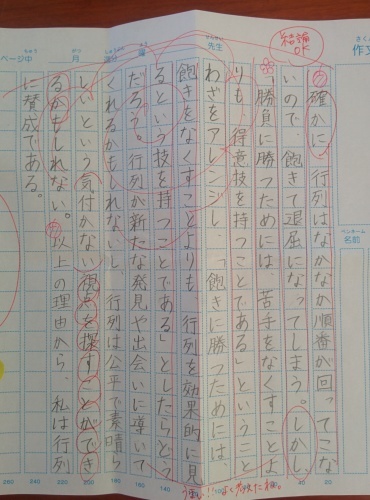 作文
結論
OK
ページ中
月
曜
先生
ペンネーム
名前
確かに、行列はなかなか順番が回ってこな
いので、飽きて退屈になってしまう。しかし
「勝負に勝つためには、苦手をなくすことよ
りも、得意技を持つことである」という
わざをアレンジし、「飽きに勝つためには、
飽きをなくすことよりも、行列を効果的に見
るという技を持つことである」としたらどう
だろう。行列が新たな発見や出会いに導いて
くれるかもしれないし、行列は公平で素晴ら
しいという気付かない視点を探すことができ
るかもしれない。以上の理由から、私は行列
に賛成である。